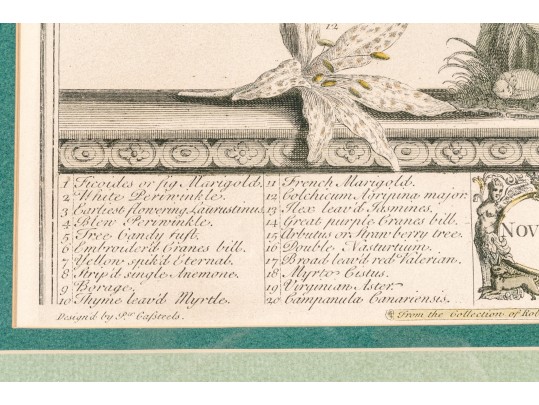 12
1 Ficoides or fig Marigold.
2 White Periwinkle.
3 Earliest flowering Laurustinus
4 Blew Periwinkle.
5 Tree Candy tuft.
6 Embroider'd Cranes bill.
7 Yellow spik'd Eternal.
8 Strip'd single Anemone.
9 Borage.
10 Thyme leav'd Myrtle.
11 French Marigold.
12 Colchicum Agripina major
13 Ilex leav'd Jasmines.
14 Great purple Cranes bill.
15 Arbutus or Strawberry tree.
16 Double Nasturtium.
17 Broad leav'd red Valerian.
18 Myrto Cistus.
19 Virginian Aster
20 Campanula Canariensis.
NOV
Design'd by Pr. Casteels.
From the Collection of Rob